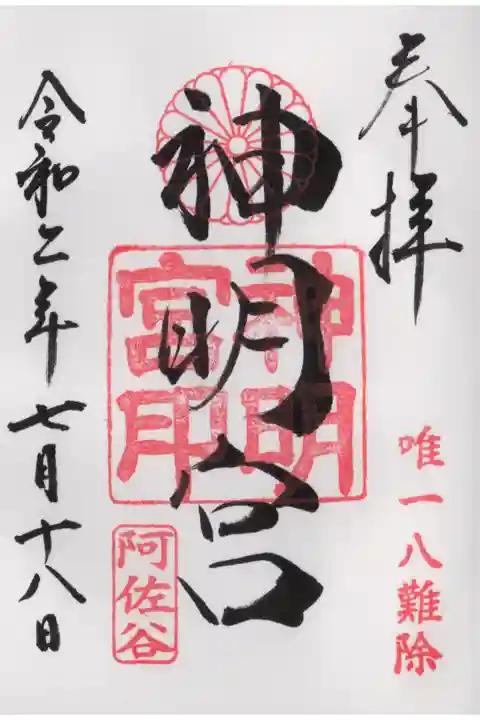 奉拝
唯一八難除
神明宮
神明宮印
阿佐谷
令和二年七月十八日